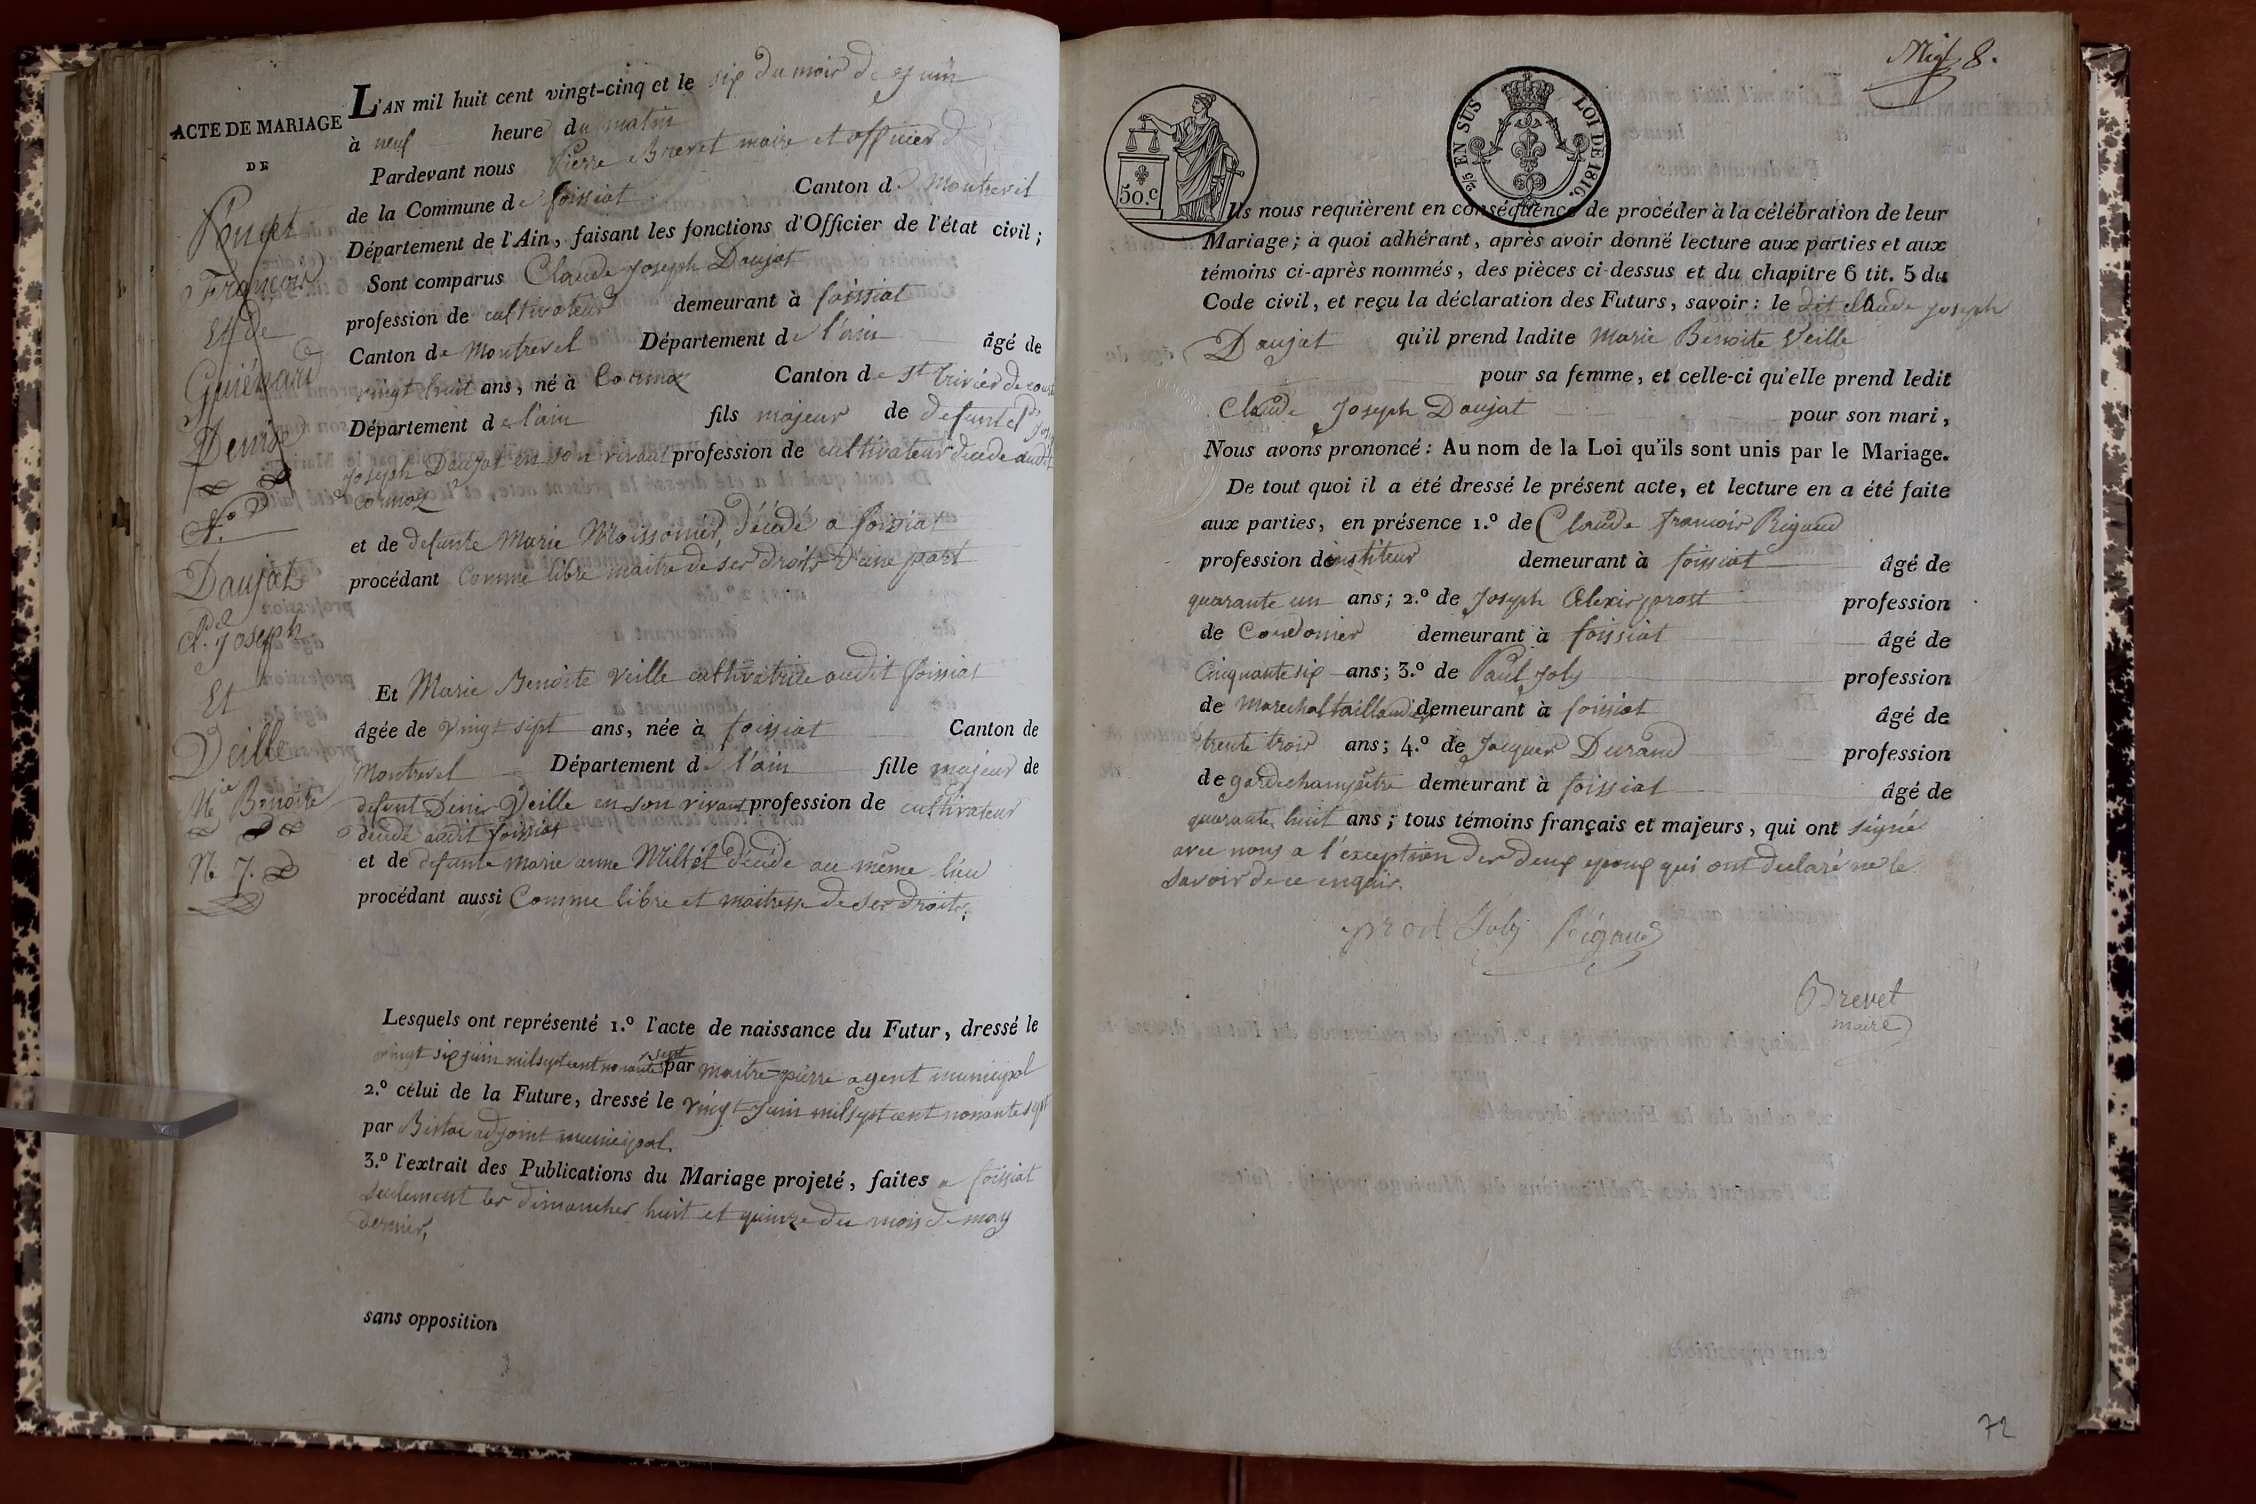 ACTE DE MARIAGE
DE
Ponget
François
Et de
Guienard
Denise
N.o
Daujat
Cl.de Joseph
Et
Veille
M.ie Benoite
N. 7.
L'AN mil huit cent vingt-cinq et le six du mois de juin
à neuf heure du matin
Pardevant nous Pierre Brevet maire et officier d
de la Commune de foissiat Canton de Montrevel
Département de l'Ain, faisant les fonctions d'Officier de l'état civil;
Sont comparus Claude Joseph Daujat
profession de cultivateur demeurant à foissiat
Canton de Montrevel Département de l'ain âgé de
vingt huit ans, né à Cormoz Canton de St trivier de cour
Département de l'ain fils majeur de defunt cl
Joseph Daujat en son vivant profession de cultivateur decede audit
Cormoz
et de defunte Marie Moissonier, décédé a foissiat
procédant Comme libre maitre de ses droits d'une part
Et Marie Benoite Veille cultivatrice audit foissiat
âgée de vingt sept ans, née à foissiat Canton de
Montrevel Département de l'ain fille majeur de
defunt Denis Veille en son vivant profession de cultivateur
décédé audit foissiat
et de defunte marie anne Millet décédé au même lieu
procédant aussi Comme libre et maitresse de ses droits;
Lesquels ont représenté 1.o l'acte de naissance du Futur, dressé le
vingt six juin mil sept cent nonante sept par maitre pierre agent municipal
2.o celui de la Future, dressé le vingt juin mil sept cent nonante sept
par adjoint municipal.
3.o l'extrait des Publications du Mariage projeté, faites a foissiat
seulement les dimanches huit et quinze du mois de may
dernier,
sans opposition
8.
50.c
2/5 EN SUS LOI DE 1816.
Ils nous requièrent en conséquence de procéder à la célébration de leur
Mariage; à quoi adhérant, après avoir donné lecture aux parties et aux
témoins ci-après nommés, des pièces ci-dessus et du chapitre 6 tit. 5 du
Code civil, et reçu la déclaration des Futurs, savoir: le dit claude joseph
Daujat qu'il prend ladite Marie Benoite Veille
pour sa femme, et celle-ci qu'elle prend ledit
Claude Joseph Daujat pour son mari,
Nous avons prononcé: Au nom de la Loi qu'ils sont unis par le Mariage.
De tout quoi il a été dressé le présent acte, et lecture en a été faite
aux parties, en présence 1.o de Claude françois Rigaud
profession de instituteur demeurant à foissiat âgé de
quarante un ans; 2.o de Joseph Alexis prost profession
de Cordonier demeurant à foissiat âgé de
Cinquante six ans; 3.o de Paul Joly profession
de Marechal taillandier demeurant à foissiat âgé de
trente trois ans; 4.o de Jacques Durand profession
de gardechampêtre demeurant à foissiat âgé de
quarante huit ans; tous témoins français et majeurs, qui ont signé
avec nous a l'exception des deux epoux qui ont declaré ne le
savoir de ce enquis.
prost Joly Rigaud
Brevet
maire
72